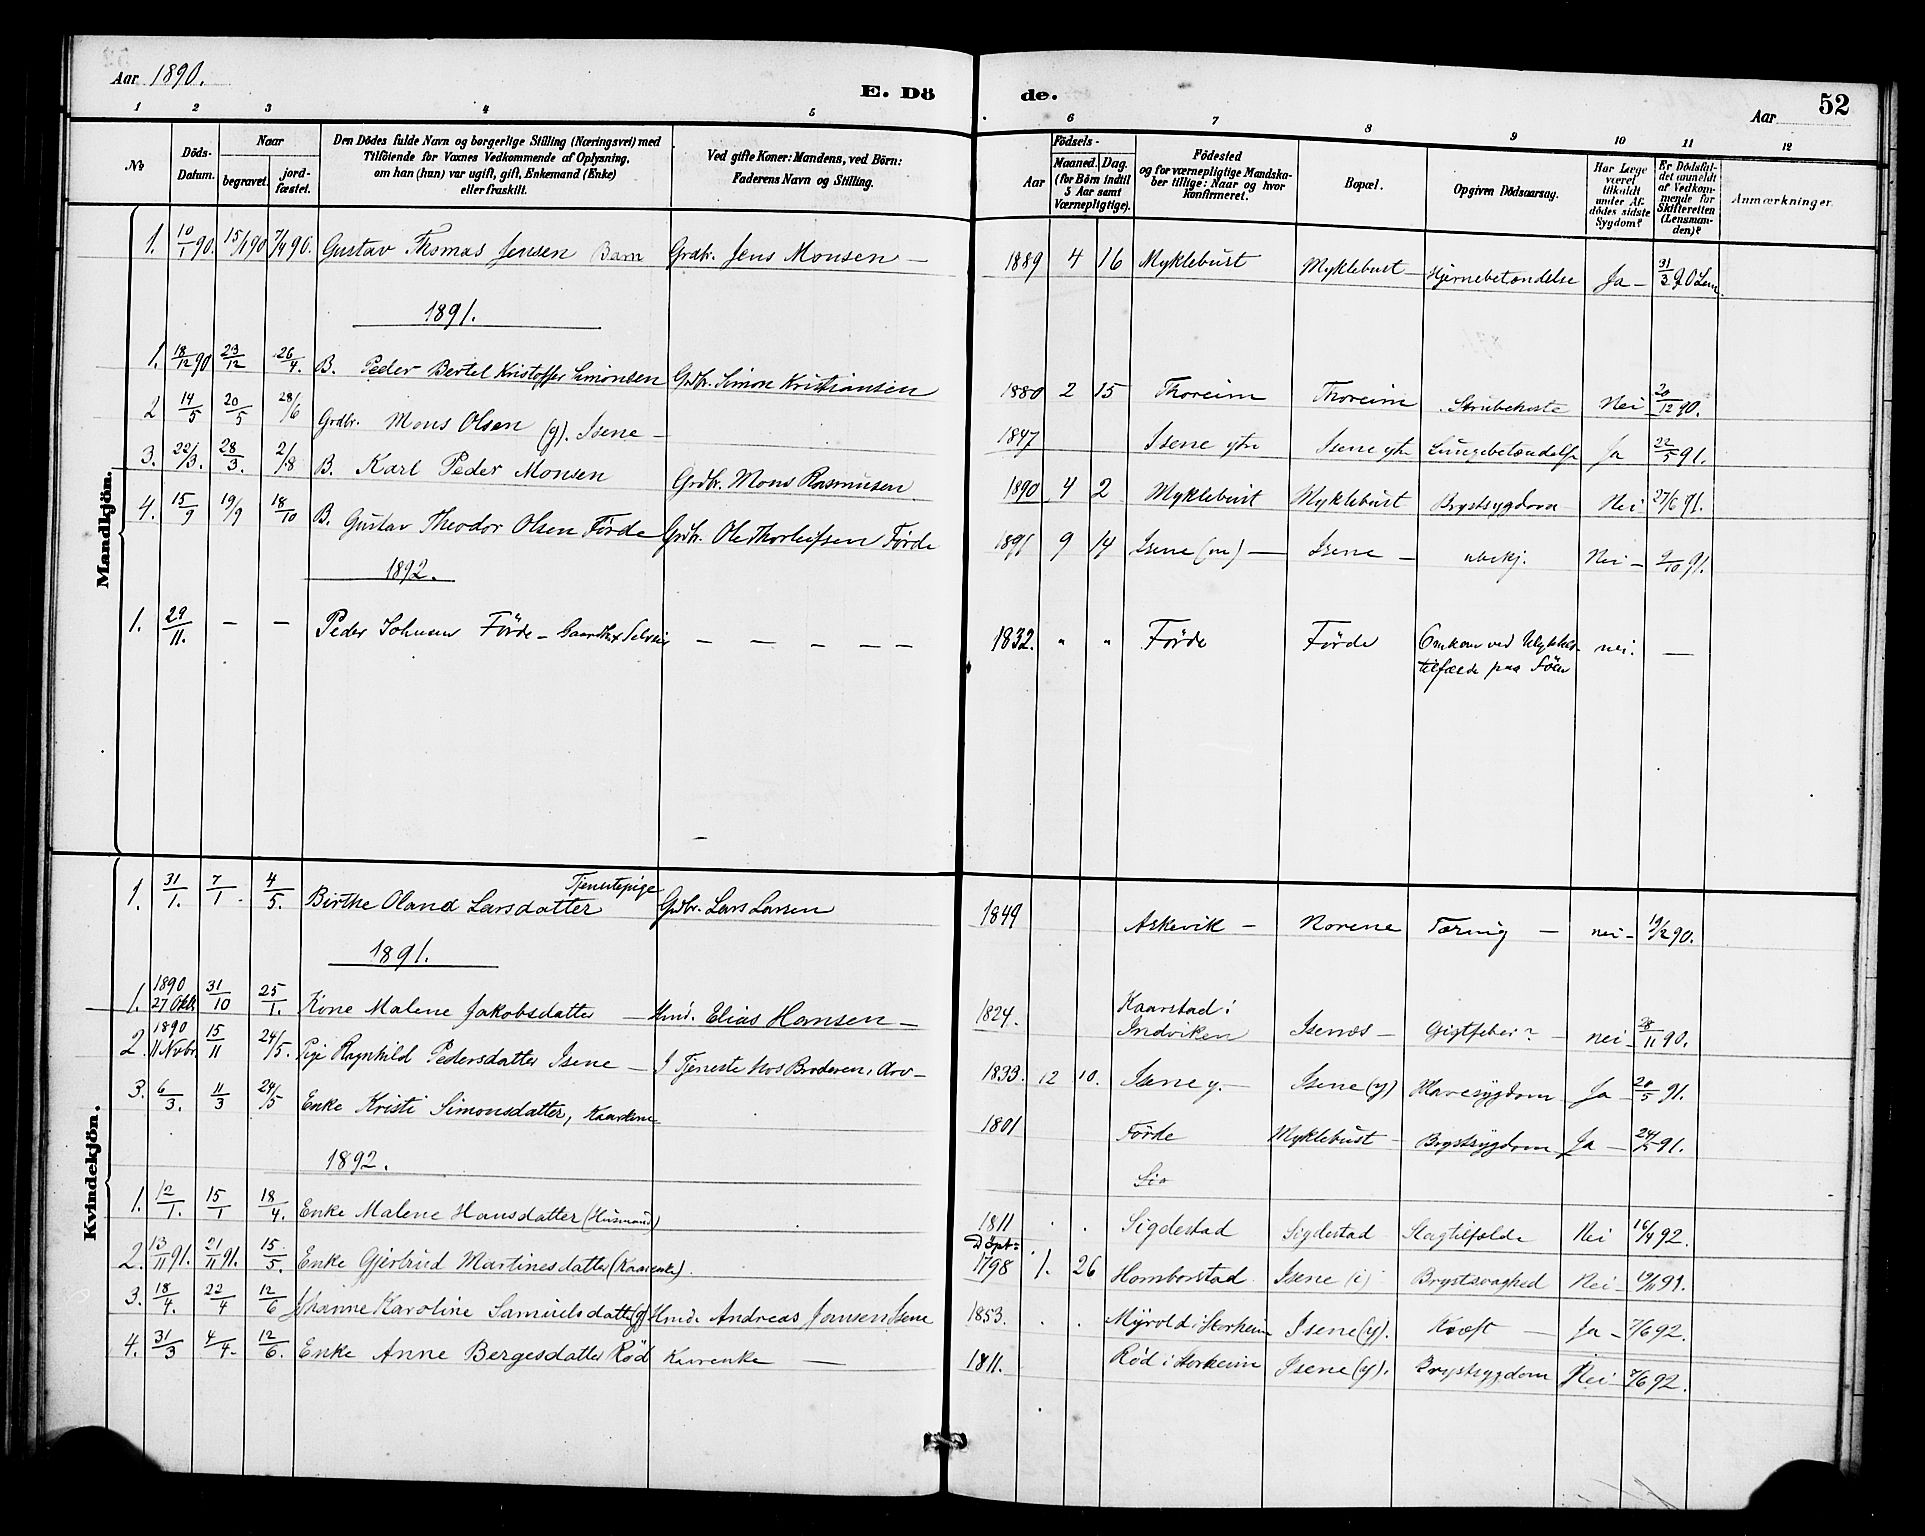 Aar 1890.
E. Dö
de.
Aar
52
1 2 3 4 5 6 7 8 9 10 11 12
No
Döds-Datum.
Naar
begravet.
jordfæstet.
Den Dödes fulde Navn og borgerlige Stilling (Næringsvei) med
Tilföiende for Voxnes Vedkommende af Oplysning,
om han (hun) var ugift, gift, Enkemand (Enke)
eller fraskilt.
Ved gifte Koner: Mandens, ved Börn:
Faderens Navn og Stilling.
Födsels-
Aar
Maaned. Dag.
(for Börn indtil
5 Aar samt
Værnepligtige).
Födested
og for værnepligtige Mandska-
ber tillige: Naar og hvor
Konfirmeret.
Bopæl.
Opgiven Dödsaarsag.
Har Læge
været
tilkaldt
under Af-
dödes sidste
Sygdom?
Er Dödsfal-
det anmeldt
af Vedkom-
mende for
Skifteretten
(Lensman-
den)?
Anmærkninger.
Mandkjön.
1. 10/1 90. 15/1 90 7/4 90. Gustav Thomas Jensen Barn Grdbr. Jens Monsen – 1889 4 16 Myklebust Myklebust – Hjernebetændelse Ja – 31/3 90 Len.
1891.
1. 18/12 90 23/12 26/4. B. Peder Bertel Kristoffer Simonsen Grdbr. Simon Kristiansen 1880 2 15 Thoreim Thoreim Strubehoste Nei 20/12 90.
2 14/5 20/5 28/6 Grdbr. Mons Olsen (g). Isene – 1847 Isene ytre Isene ytre Lungebetændelse Ja 22/5 91.
3. 22/3. 28/3. 2/8 B. Karl Peder Monsen Grdbr. Mons Rasmusen 1890 4 2 Myklebust Myklebust Brystsygdom Nei 27/6 91.
4. 15/9 19/9 18/10 B. Gustav Theodor Olsen Förde Grdbr. Ole Thorleifsen Förde 1891 9 14 Isene (m) – Isene – ubekj. Nei – 9/10 91.
1892.
1. 29/11. – – Peder Johnsen Förde – – – – – – 1832. " " Förde Förde Omkom ved Ulykkes-
tilfælde paa Söen nei. –
Kvindekjön.
1. 31/1. 7/1. 4/5. Birthe Oland Larsdatter Tjenestepige Grdbr. Lars Larsen 1849 Askevik – Norene Tæring – nei – 19/2 90.
1891.
1. 1890 27 Okt. 31/10 25/1. Kone Malene Jakobsdatter – Hmd. Elias Hansen – 1824. Kaarstad i
Indviken Isenæs – Gigtfeber? – nei – 28/11 90.
2. 1890 11 Novbr. 15/11 24/5. Pige Ragnhild Pedersdatter Isene – I Tjeneste hos Broderen, 1833. 12 10. Isene y. – Isene (y) Mavesygdom Ja – 20/5 91.
3. 6/3. 11/3 24/5 Enke Kristi Simonsdatter, 1801 Förde Myklebust – Brystsygdom Ja – 24/5 91.
1892.
Sio
1. 12/1. 15/1 18/4. Enke Malene Hansdatter (Husmand) 1811 . . Sigdestad Sigdestad Slagtilfælde Nei 16/4 92.
2. 13/11 91. 21/11 91. 15/5. Enke Gjertrud Martinesdatter (Kaarenke). Döpt: 1798 1. 26 Homborstad Isene (i) Brystsvaghed Nei – 19/11 91.
3. 18/4. 22/4 12/6 Johanne Karoline Samuelsdatter (g) Hmd. Andreas Jansen Isene 1853. . . Myrold i Storheim Isene (y). Kræft – Ja – 7/6 92.
4. 31/3 4/4. 12/6. Enke Anne Bergesdatter Röd Kaarenke – 1811. Röd i Storheim Isene (y). Brystsygdom Nei – 7/6 92.